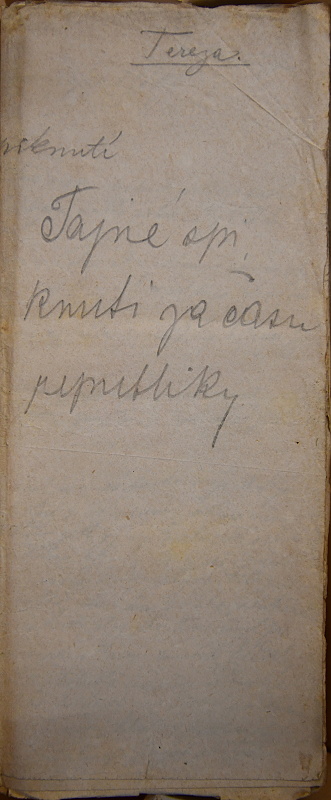 Tereza.
Tajné spi
knutí za času
republiky